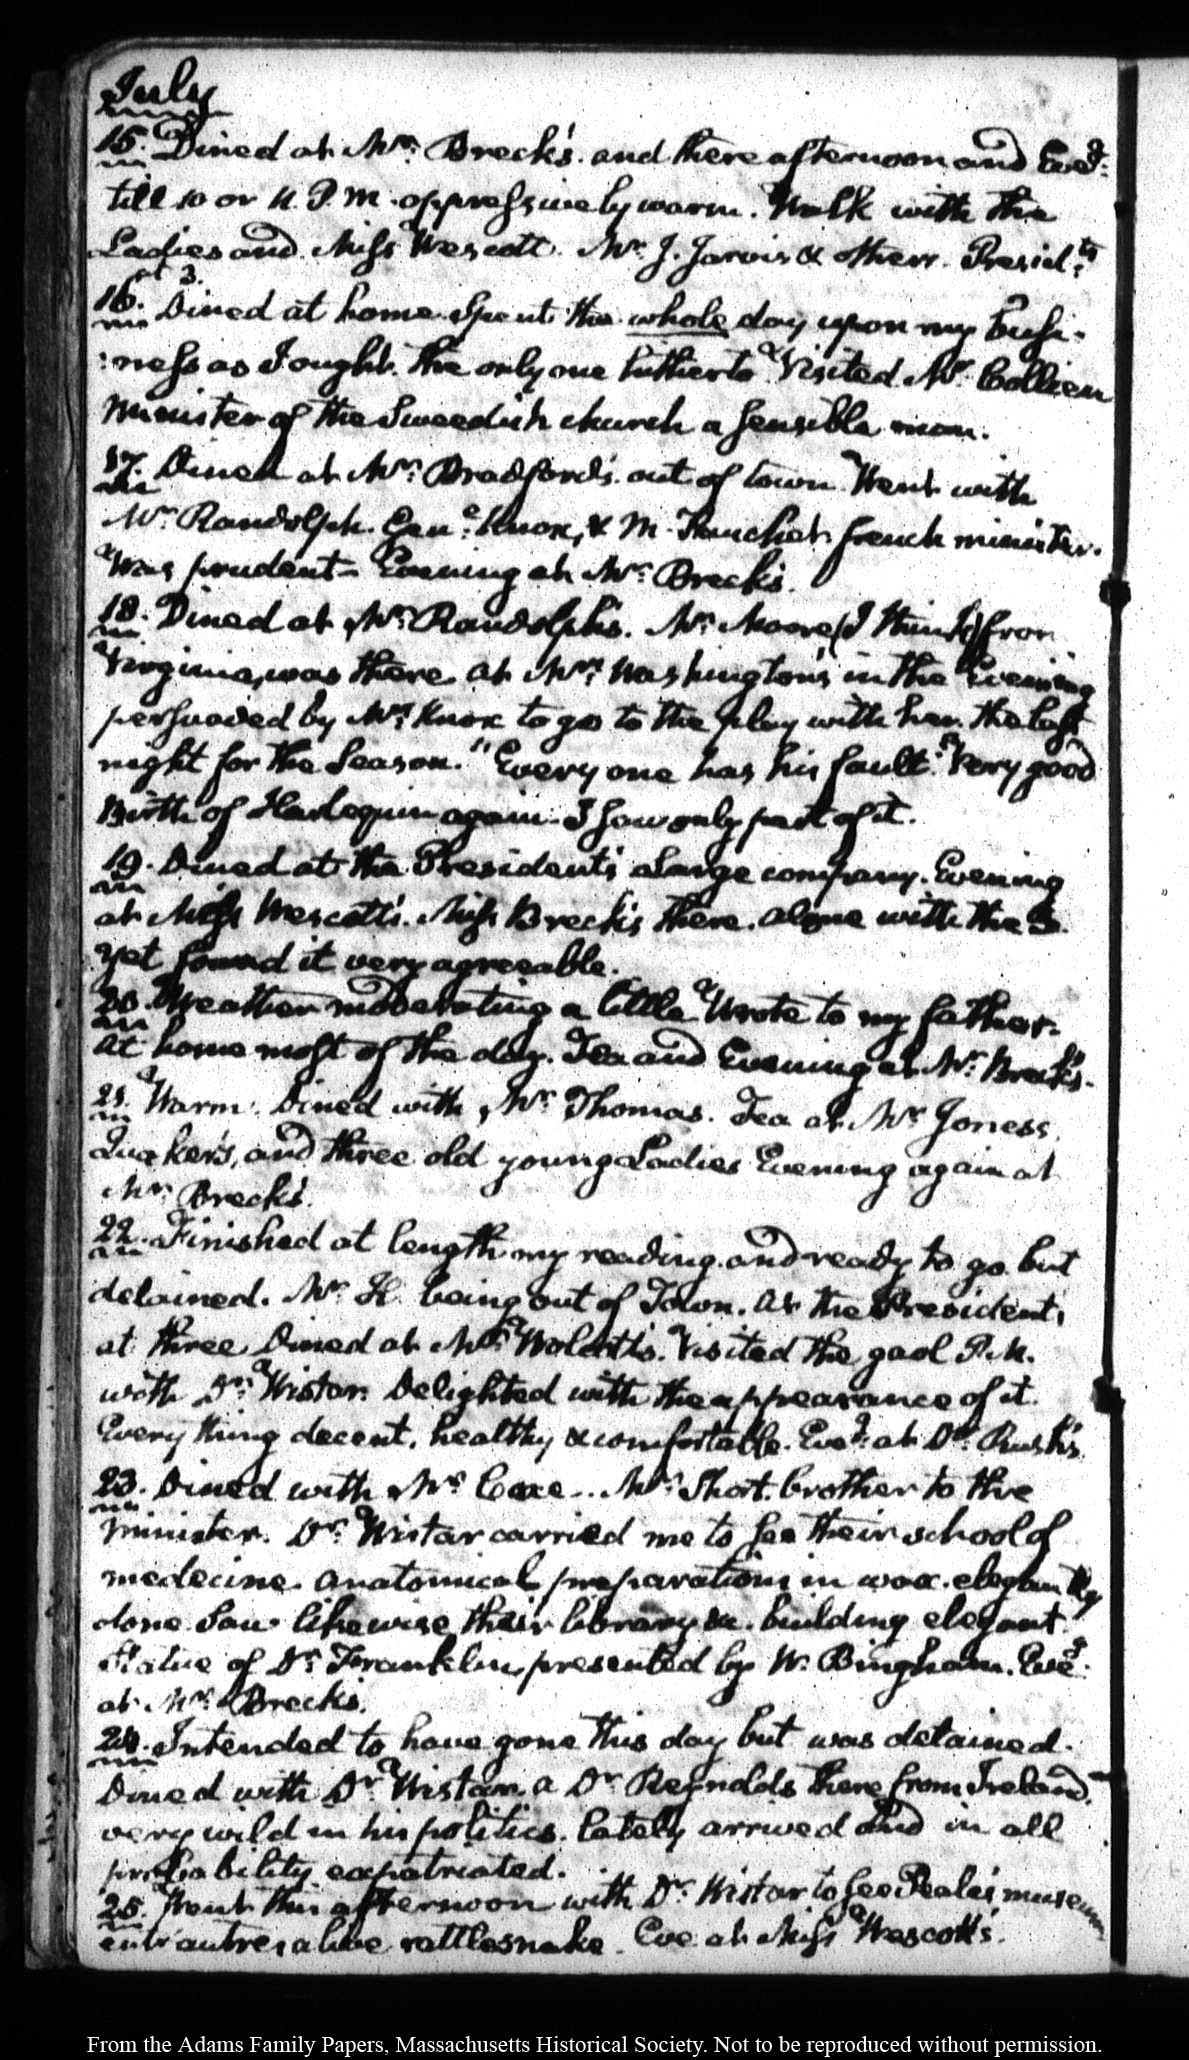 July
15. Dined at Mr. Breck's. and there afternoon and Eveg.
till 10 or 11. P.M. oppressively warm. Walk with the
Ladies and Miss Wescott. Mr. J. Jarvis & others. Presidts
at 3.
16. Dined at home. Spent the whole day upon my busi-
:ness as I ought. the only one hitherto. Visited Mr. Collien
Minister of the Sweedish church a sensible man.
17. Dined at Mr. Bradford's. out of town. Went with
Mr. Randolph. Genl. Knox, & M. Fauchet french minister.
Was prudent- Evening at Mr. Breck's.
18. Dined at Mr. Randolph's. Mr. Moore (I think) from
Virginia, was there. At Mrs. Washington's in the Evening
persuaded by Mrs. Knox to go to the play with her. the last
night for the Season. "Every one has his fault." Very good
Birth of Harlequin again. I saw only part of it.
19. Dined at the President's a large company. Evening
at Miss Wescott's. Miss Breck's there. alone with the 3.
Yet found it very agreeable.
20. Weather moderating a little. Wrote to my father.
At home most of the day. Tea and Evening at Mr. Breck's.
21. Warm. Dined with Mr. Thomas. Tea at Mr. Joness.
Quaker's, and three old young Ladies Evening again at
Mr. Breck's.
22. Finished at length my reading. and ready to go but
detained. Mr. H. being out of Town. At the President's
at three Dined at Mr. Wolcott's. Visited the gaol P.M.
with Dr. Wistar. Delighted with the appearance of it.
Every thing decent, healthy & comfortable. Eveg. at Dr. Rush's.
23. Dined with Mr. Coxe... Mr. Short. brother to the
minister. Dr. Wistar carried me to see their school of
medecine. Anatomical preparations in wax. elegantly
done. Saw likewise their library &c. building elegant.
Statue of Dr. Franklin, presented by W. Bingham. Eveg.
at Mr. Breck's.
24. Intended to have gone this day but was detained.
Dined with Dr. Wistar. a Dr. Reynolds there from Ireland.
very wild in his politics. lately arrived and in all
probability expatriated.
25. Went this afternoon with Dr. Wistar to see Peale's museum
entr'autres alive rattlesnake. Eve at Miss Wescott's.
From the Adams Family Papers, Massachusetts Historical Society. Not to be reproduced without permission.